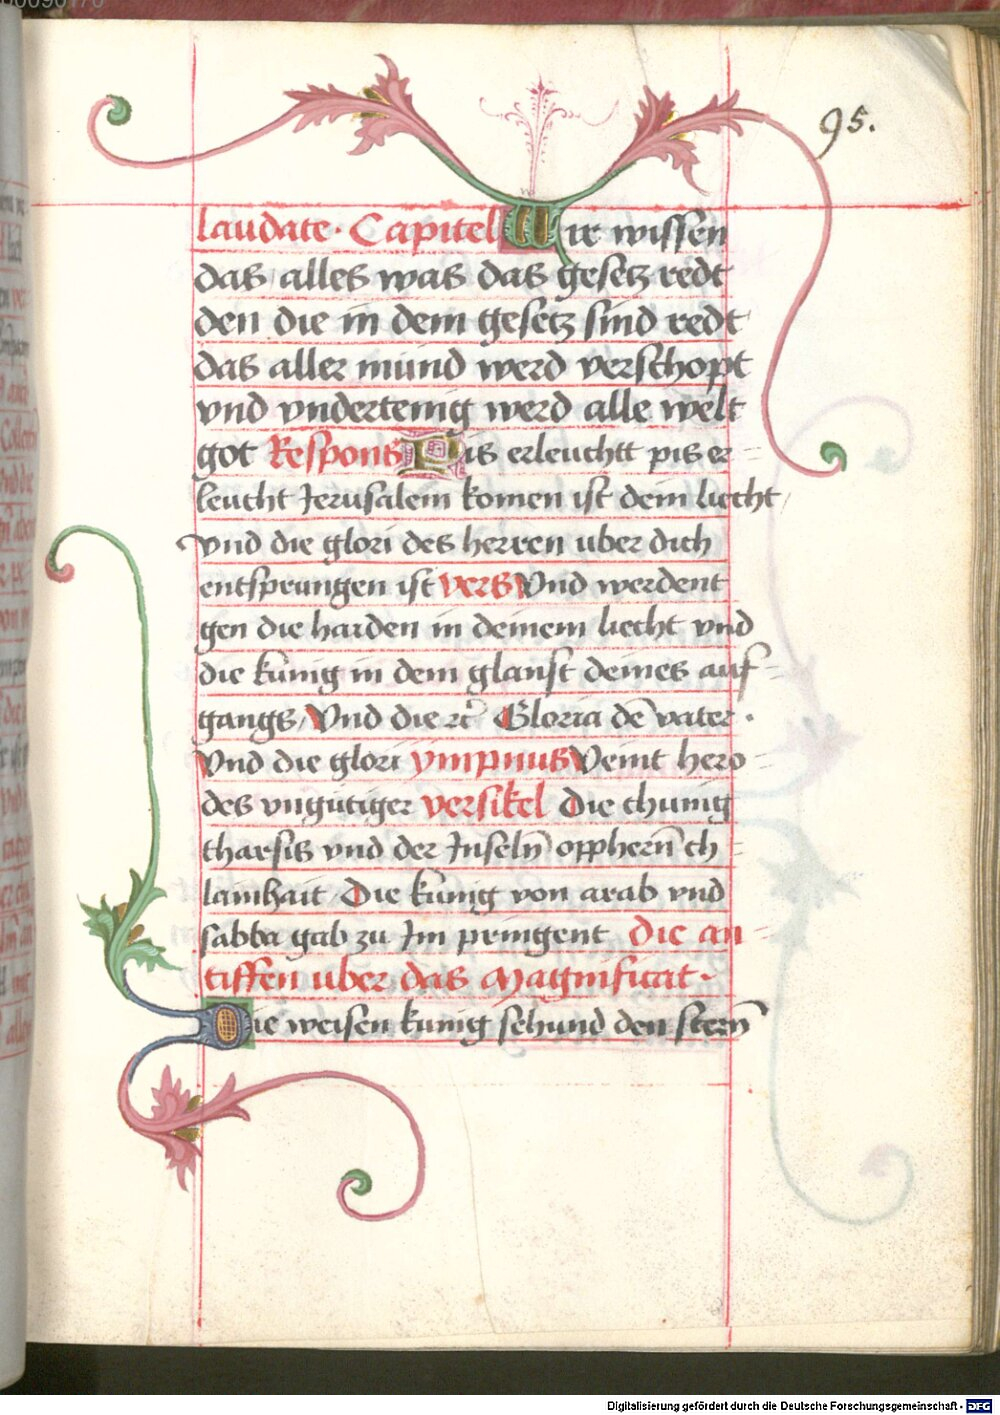 95.
laudate · Capitel Wir wissen
das alles was das gesetz redt
den die in dem gesetz sind redt
das aller mund werd verschopt
vnd vndertenig werd alle welt
got Respons Pis erleuchtt pis er
leucht Jerusalem komen ist dein liecht
vnd die glori des herren uber dich
entsprungen ist vers Vnd werdent
gen die harden in deinem liecht vnd
die kunig in dem glanst deines auf
gangs, Vnd die rc Gloria dē vater ·
Vnd die glori ympnus Veint hero
des vngutiger versikel Die chunig
tharsis vnd der Inseln opphern ch
lainhait Die kunig von arab vnd
sabba gab zu Im pringent Die an
tiffen uber das Magnificat ·
Die weisen kunig sehund den stern
Digitalisierung gefördert durch die Deutsche Forschungsgemeinschaft - DFG